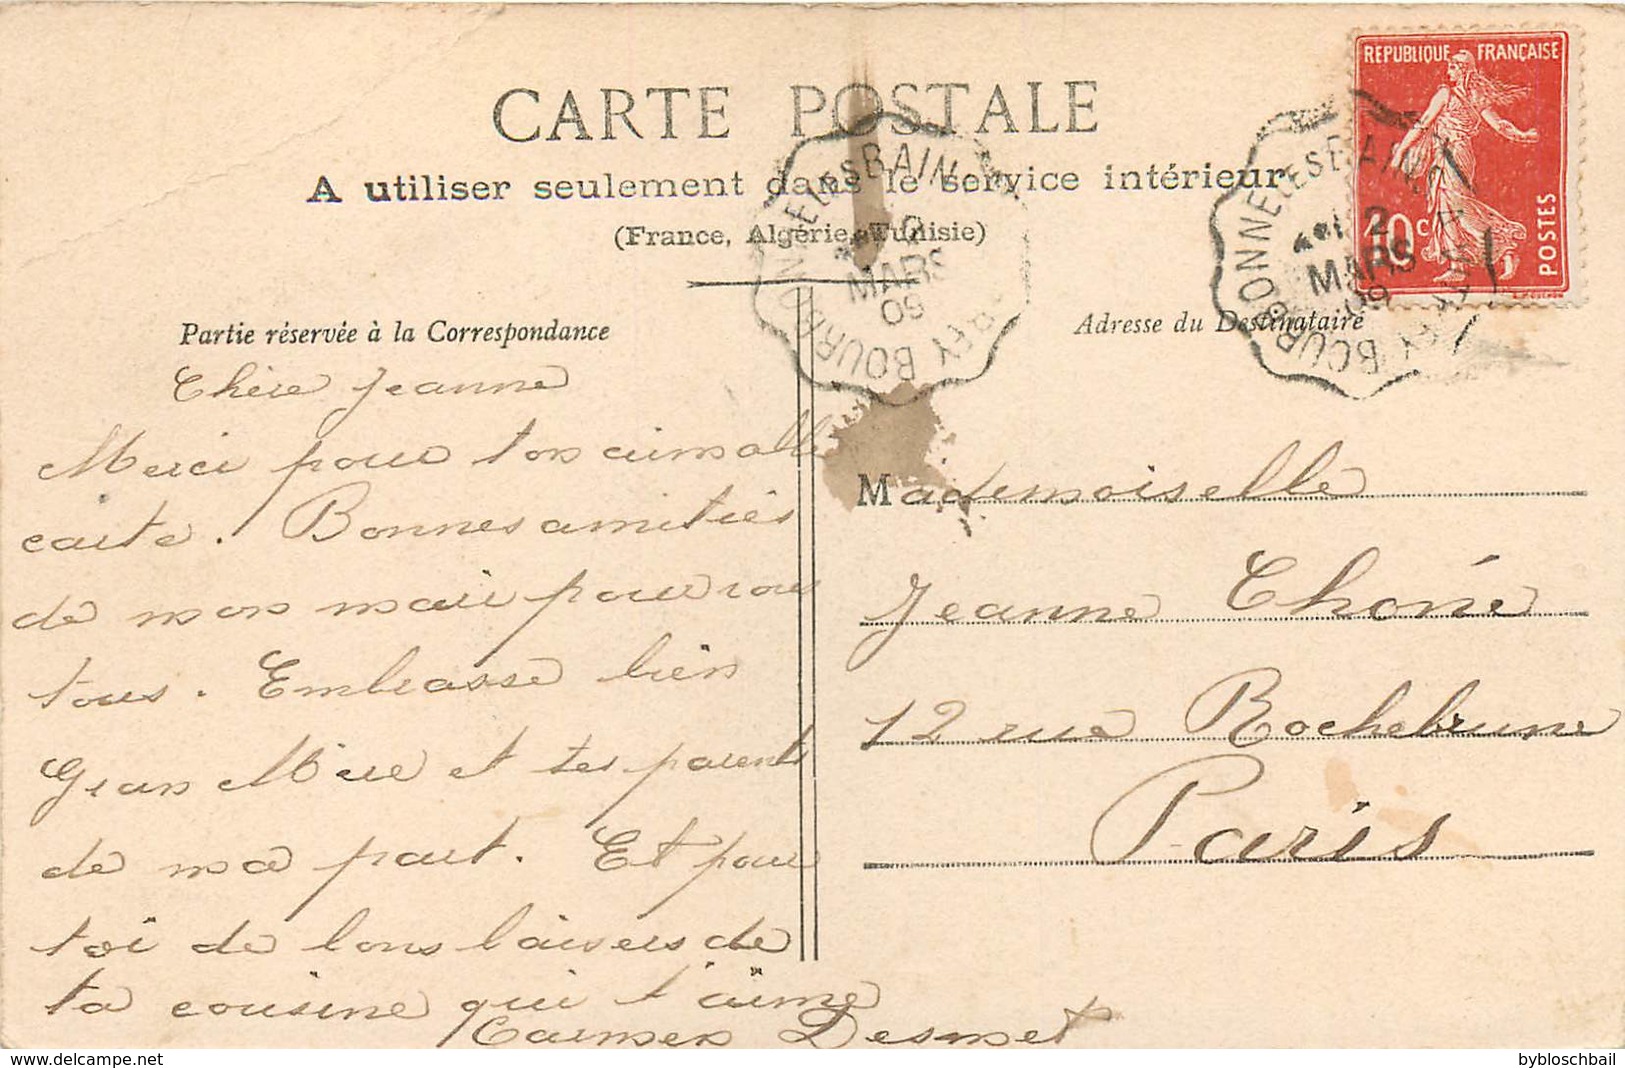 REPUBLIQUE FRANÇAISE
10c
POSTES
CARTE POSTALE
A utiliser seulement dans le service intérieur
(France, Algérie, Tunisie)
BOURBONNE LES BAINS
2
MARS
09
BOURBONNE LES BAINS
2
MARS
09
Partie réservée à la Correspondance
Chère Jeanne
Merci pour ton aimable
carte. Bonnes amitiés
de mon mari pour vous
tous. Embrasse bien
Gran Mère et tes parents
de ma part. Et pour
toi de bons baisers de
ta cousine qui t'aime
Carmen Desmet
Adresse du Destinataire
Mademoiselle
Jeanne Choné
12 rue Rochebrune
Paris
bybloschbail